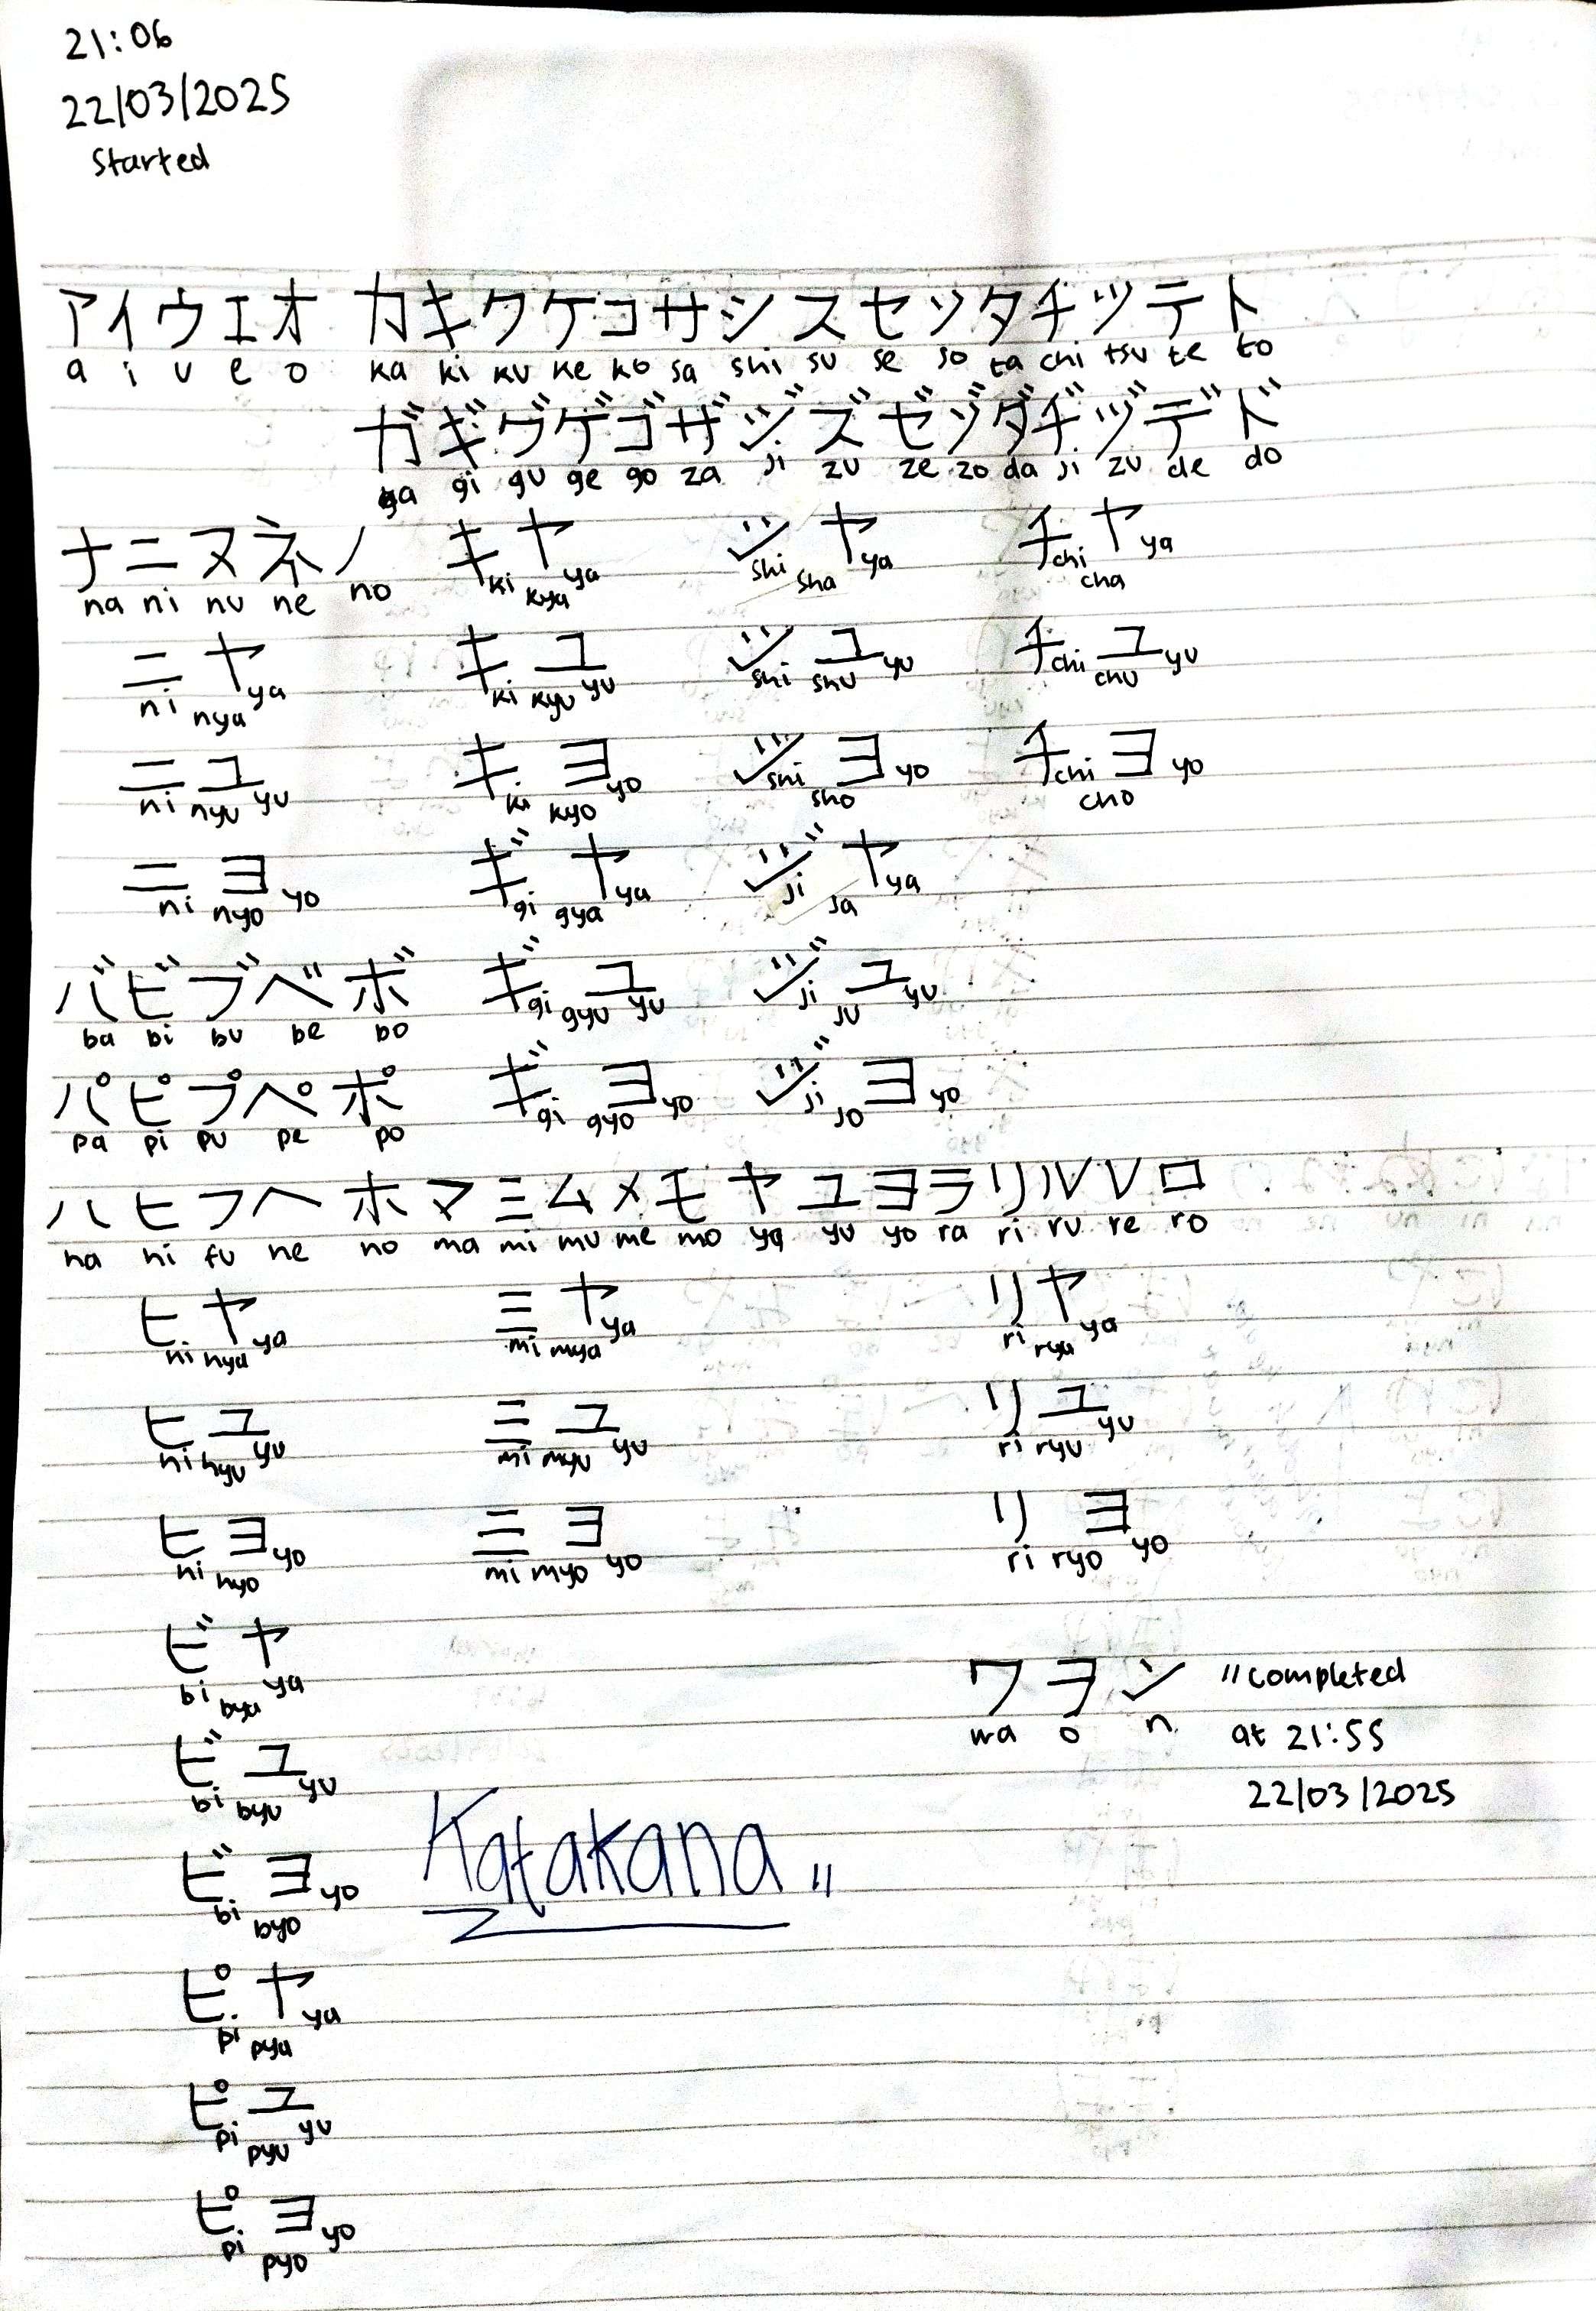 21:06
22/03/2025
Started
アイウエオ カキクケコサシスセソタチツテト
a i u e o ka ki ku ke ko sa shi su se so ta chi tsu te to
ガギグゲゴザジズゼゾダヂヅデド
ga gi gu ge go za ji zu ze zo da ji zu de do
ナニヌネノ キヤ シヤ チヤ
na ni nu ne no ki kya ya shi sha ya chi cha ya
ニヤ キユ シユ チユ
ni nya ya ki kyu yu shi shu yu chi chu yu
ニユ キヨ シヨ チヨ
ni nyu yu ki kyo yo shi sho yo chi cho yo
ニヨ ギヤ ジヤ
ni nyo yo gi gya ya ji ja ya
バビブベボ ギユ ジユ
ba bi bu be bo gi gyu yu ji ju yu
パピプペポ ギヨ ジヨ
pa pi pu pe po gi gyo yo ji jo yo
ハヒフヘホマミムメモヤユヨラリルレロ
ha hi fu he ho ma mi mu me mo ya yu yo ra ri ru re ro
ヒヤ ミヤ リヤ
hi hya ya mi mya ya ri rya ya
ヒユ ミユ リユ
hi hyu yu mi myu yu ri ryu yu
ヒヨ ミヨ リヨ
hi hyo yo mi myo yo ri ryo yo
ビヤ
bi bya ya
ワヲン "completed
wa o n at 21:55
22/03/2025
ビユ
bi byu yu
ビヨ
bi byo yo
Katakana "
ピヤ
pi pya ya
ピユ
pi pyu yu
ピヨ
pi pyo yo